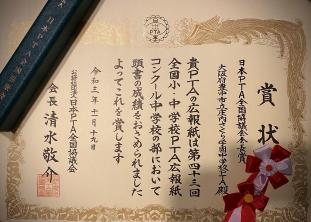 賞状
日本PTA全国協議会会長賞
貴PTAの広報紙は第四十三回
全国小・中学校PTA広報紙
コンクール中学校の部において
頭書の成績をおさめられました
よってこれを賞します
令和三年十一月十九日
日本PTA全国協議会
会長 清水敬介